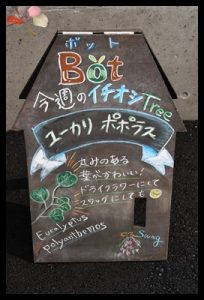 ポット
Bot
今週のイチオシTree
ユーカリ ポポラス
丸みのある
葉がかわいい!
ドライフラワーにして
スワッグにしても
Eucalyptus
polyanthemos
Swag